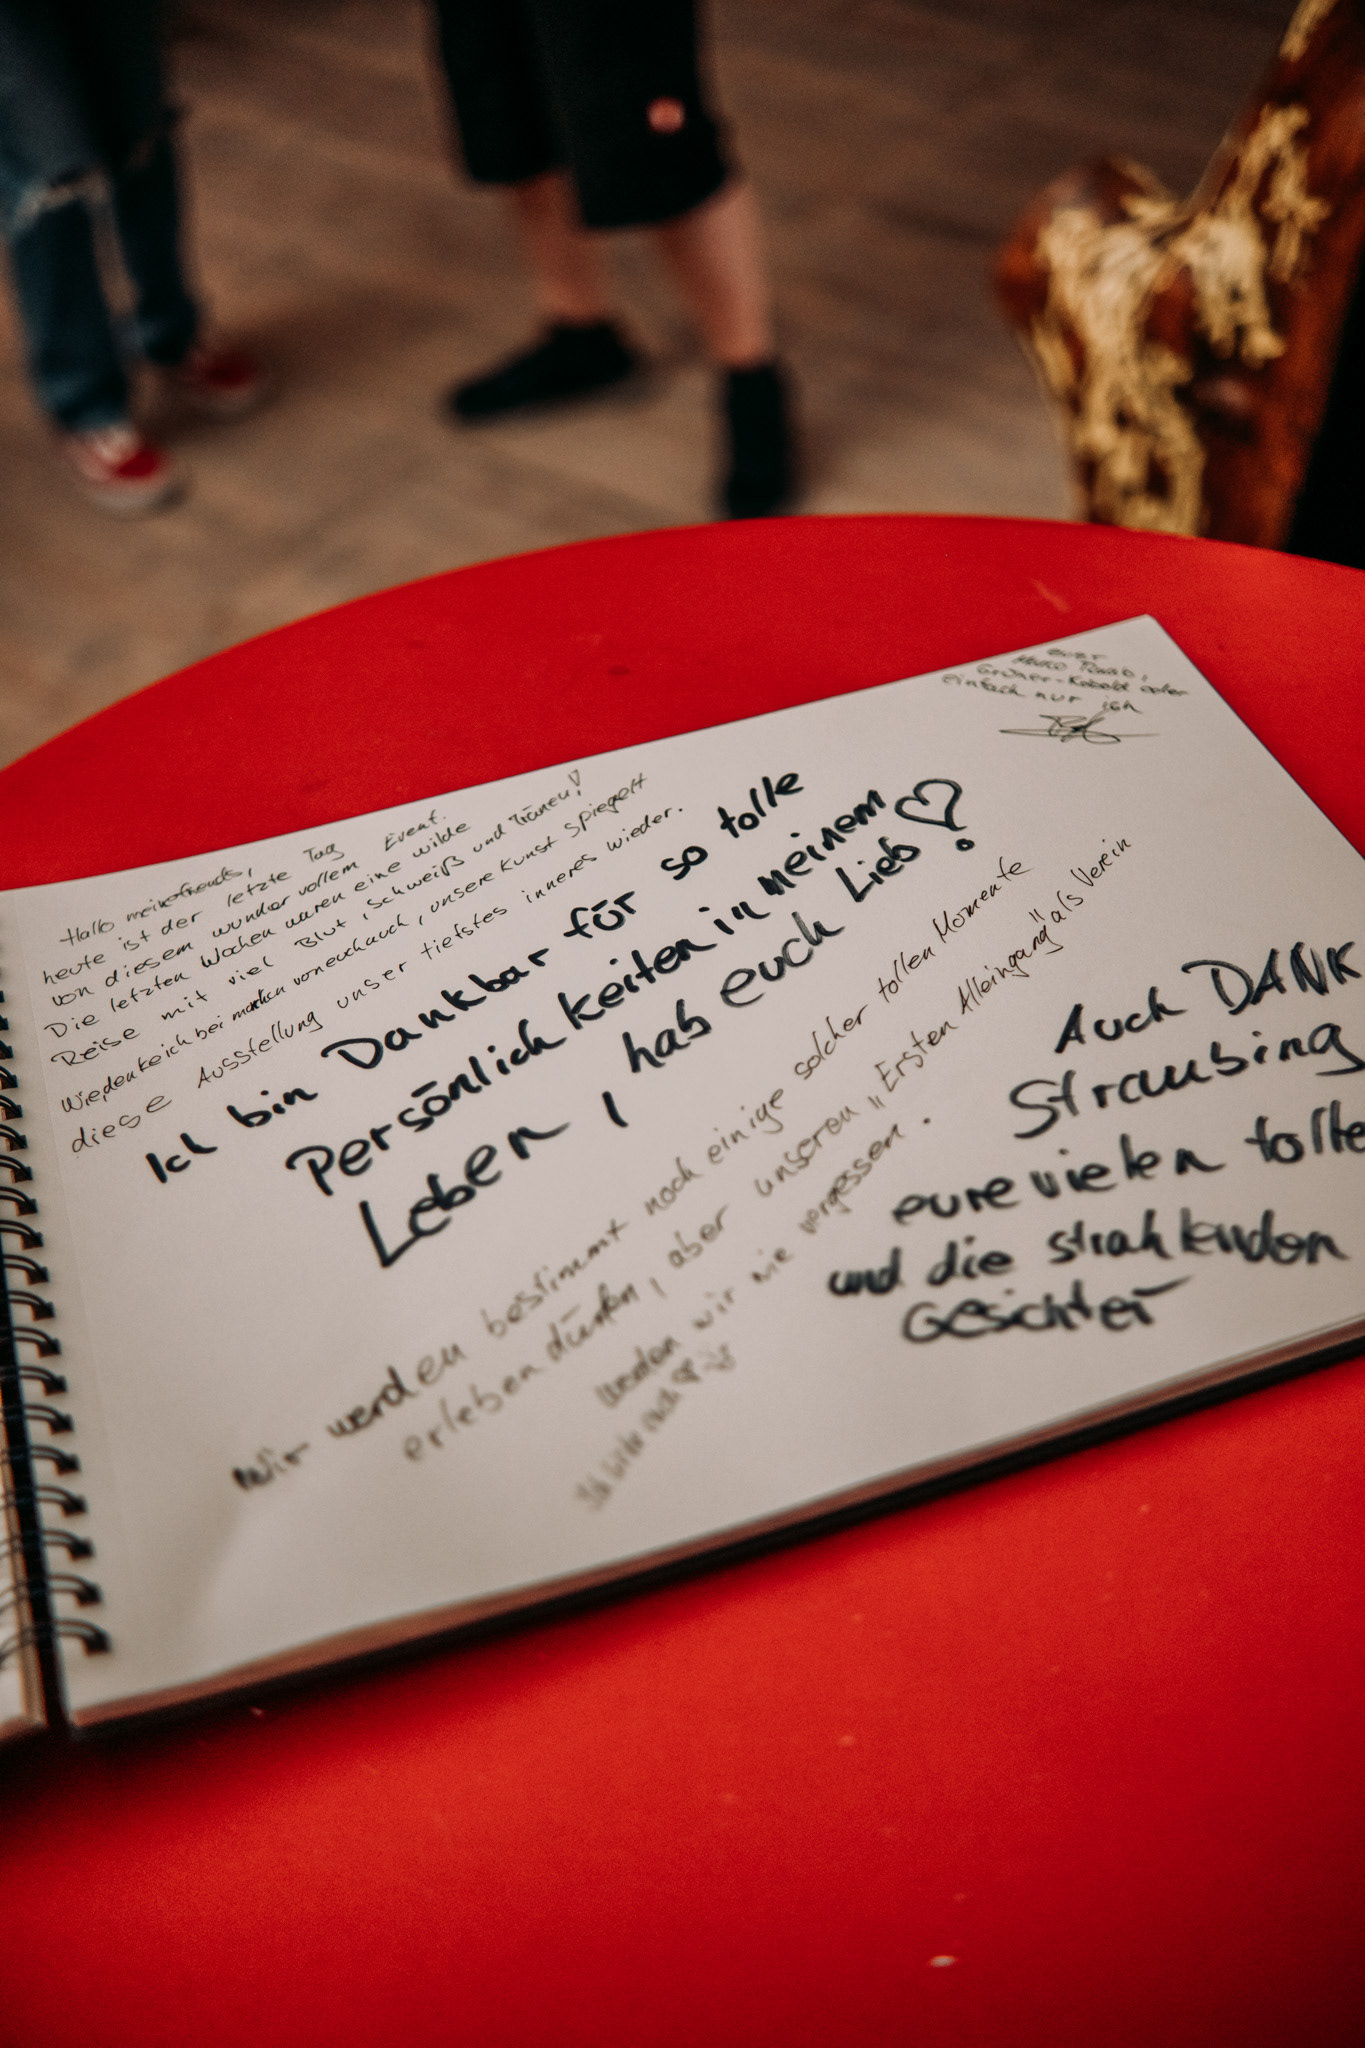 Hallo meinefreunds,
heute ist der letzte Tag
von diesem wundervollem Event.
Die letzten Wochen waren eine wilde
Reise mit viel Blut, Schweiß und Tränen!
bei voneuchauch, unsere Kunst spiegelt
diese Ausstellung unser tiefstes inneres wieder.
Ich bin Dankbar für so tolle
Persönlichkeiten in meinem
Leben, hab euch Lieb!
Wir werden bestimmt noch einige solcher tollen Momente
erleben dürfen, aber unseren "Ersten Alleingang" als Verein
werden wir nie vergessen.
einfach nur ich
Auch DANK
Straubing
eure vielen tolle
und die strahlenden
Gesichter